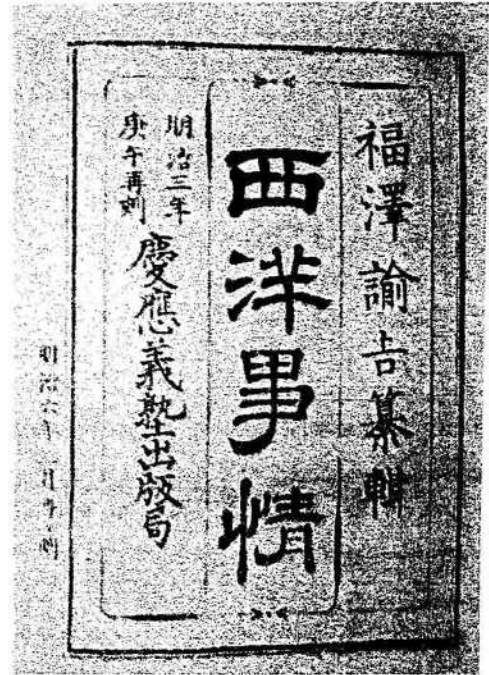 福澤諭吉纂輯
西洋事情
明治三年
庚午再刻
慶應義塾出版局
明治六年